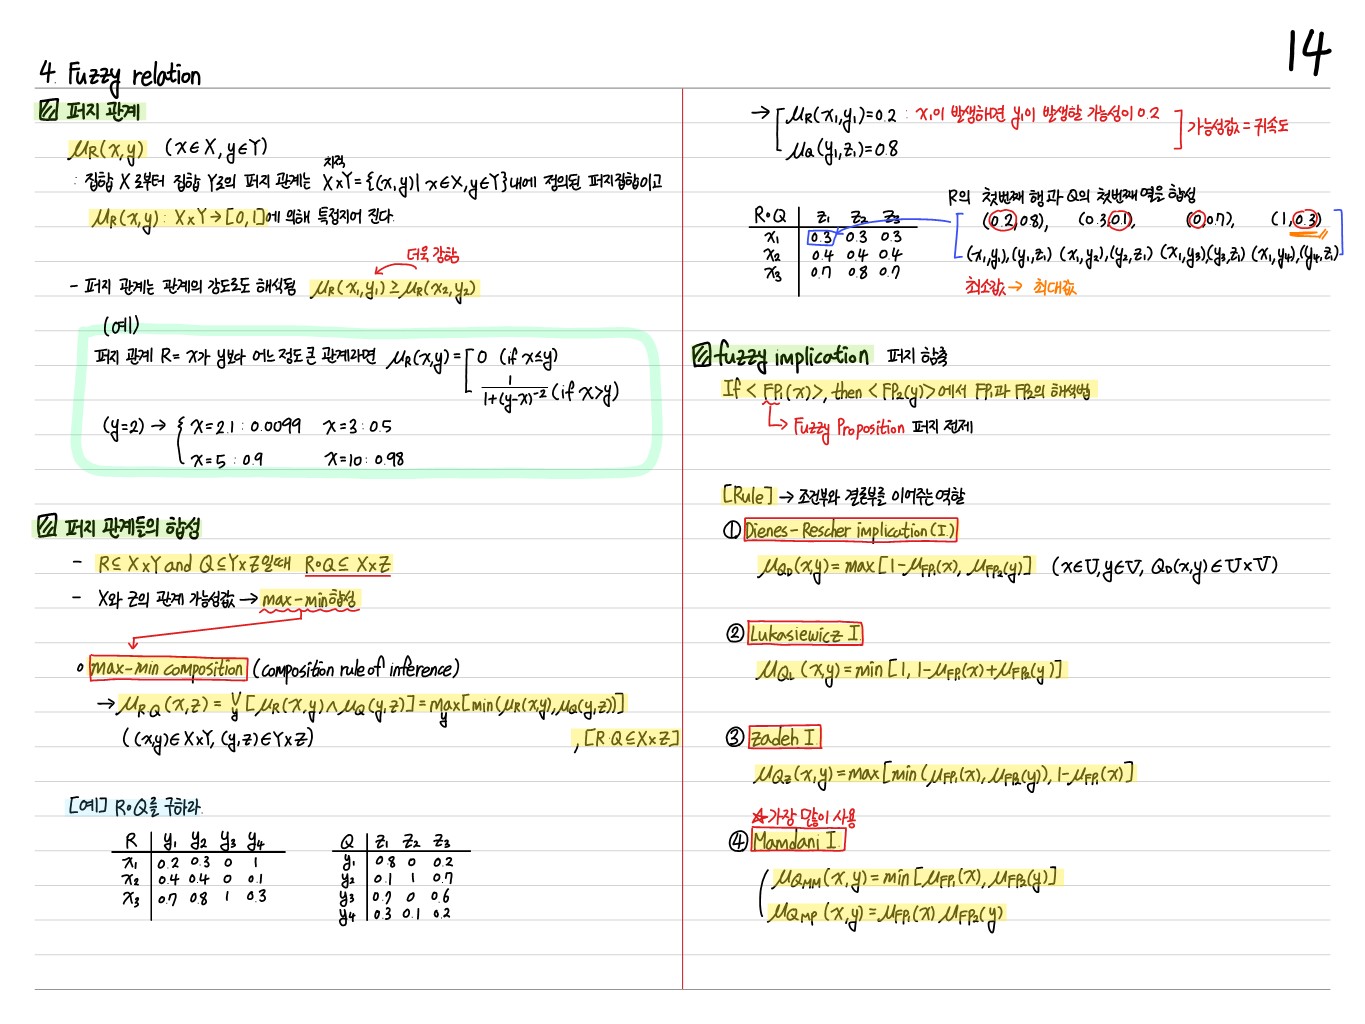 14
4. Fuzzy relation
퍼지 관계
μR(x,y) (x∈X, y∈Y)
직적
: 집합 X로부터 집합 Y로의 퍼지 관계는 X×Y={(x,y)| x∈X, y∈Y}내에 정의된 퍼지집합이고
μR(x,y) : X×Y→[0,1]에 의해 특징지어 진다.
더욱 강함
- 퍼지 관계는 관계의 강도로도 해석됨 μR(x1,y1)≥μR(x2,y2)
(예)
퍼지 관계 R= x가 y보다 어느정도 큰 관계라면 μR(x,y)=[0 (if x≤y)
1/1+(y-x)^-2 (if x>y)
(y=2) → { x=2.1 : 0.0099 x=3 : 0.5
x=5 : 0.9 x=10 : 0.98
퍼지 관계들의 합성
- R⊆X×Y and Q⊆Y×Z일때 R∘Q⊆X×Z
- X와 Z의 관계 가능성값 → max-min합성
∘ max-min composition (composition rule of inference)
→ μR·Q(x,z) = V y [μR(x,y)∧μQ(y,z)] = max y[min(μR(x,y),μQ(y,z))]
((x,y)∈X×Y, (y,z)∈Y×Z) , [R·Q⊆X×Z]
[예] R∘Q를 구하라.
R y1 y2 y3 y4
x1 0.2 0.3 0 1
x2 0.4 0.4 0 0.1
x3 0.7 0.8 1 0.3
Q z1 z2 z3
y1 0.8 0 0.2
y2 0.1 1 0.7
y3 0.7 0 0.6
y4 0.3 0.1 0.2
→ [μR(x1,y1)=0.2 : x1이 발생하면 y1이 발생할 가능성이 0.2
μQ(y1,z1)=0.8
] 가능성값 = 귀속도
R의 첫번째 행과 Q의 첫번째 열을 합성
R∘Q z1 z2 z3
x1 0.3 0.3 0.3
x2 0.4 0.4 0.4
x3 0.7 0.8 0.7
(0.2,0.8), (0.3,0.1), (0,0.7), (1,0.3)
(x1,y1),(y1,z1) (x1,y2),(y2,z1) (x1,y3),(y3,z1) (x1,y4),(y4,z1)
최소값 → 최대값
fuzzy implication 퍼지 함축
If <FP1(x)>, then <FP2(y)>에서 FP1과 FP2의 해석법
→ Fuzzy Proposition 퍼지 전제
[Rule] → 조건부와 결론부를 이어주는 역할
① Dienes-Rescher implication(I.)
μQD(x,y)=max[1-μFP1(x), μFP2(y)] (x∈U, y∈V, QD(x,y)∈U×V)
② Lukasiewicz I.
μQL(x,y)=min[1, 1-μFP1(x)+μFP2(y)]
③ Zadeh I.
μQZ(x,y)=max[min(μFP1(x), μFP2(y)), 1-μFP1(x)]
☆가장 많이 사용
④ Mamdani I.
μQMM(x,y)=min[μFP1(x), μFP2(y)]
μQMP(x,y)=μFP1(x) μFP2(y)